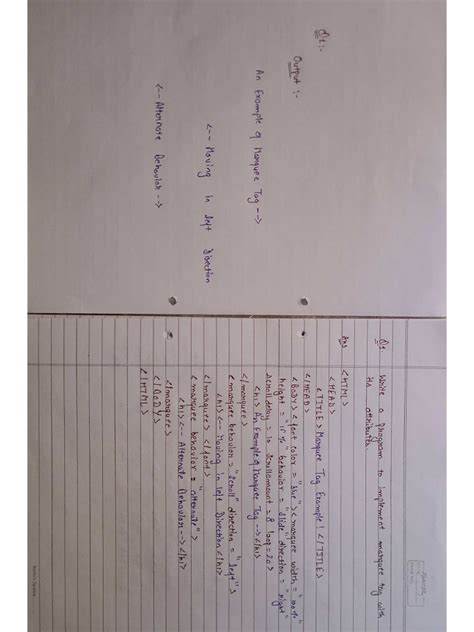 Q1:-
Output :-
An Example of Marquee Tag -->
<-- Moving In left Direction
<-- Alternate Behaviour -->
Q1 Write a program to implement marquee tag with
its attributes.
Ans <HTML>
<HEAD>
<TITLE> Marquee Tag Example! </TITLE>
</HEAD>
<BODY> <font color = "blue"> <marquee width =
height = behaviour = "slide" direction = "right"
scrolldelay = 10 scrollamount = 8 loop=20>
<h1> An Example of Marquee Tag --></h1>
</marquee>
<marquee behaviour = "scroll" direction = "left">
<h1> <-- Moving in left Direction </h1>
</marquee> </font>
<marquee behaviour = "alternate">
<h1> <-- Alternate Behaviour --> </h1>
</marquee>
</BODY>
</HTML>